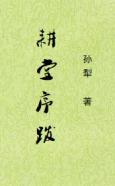 耕堂序跋
孙犁 著